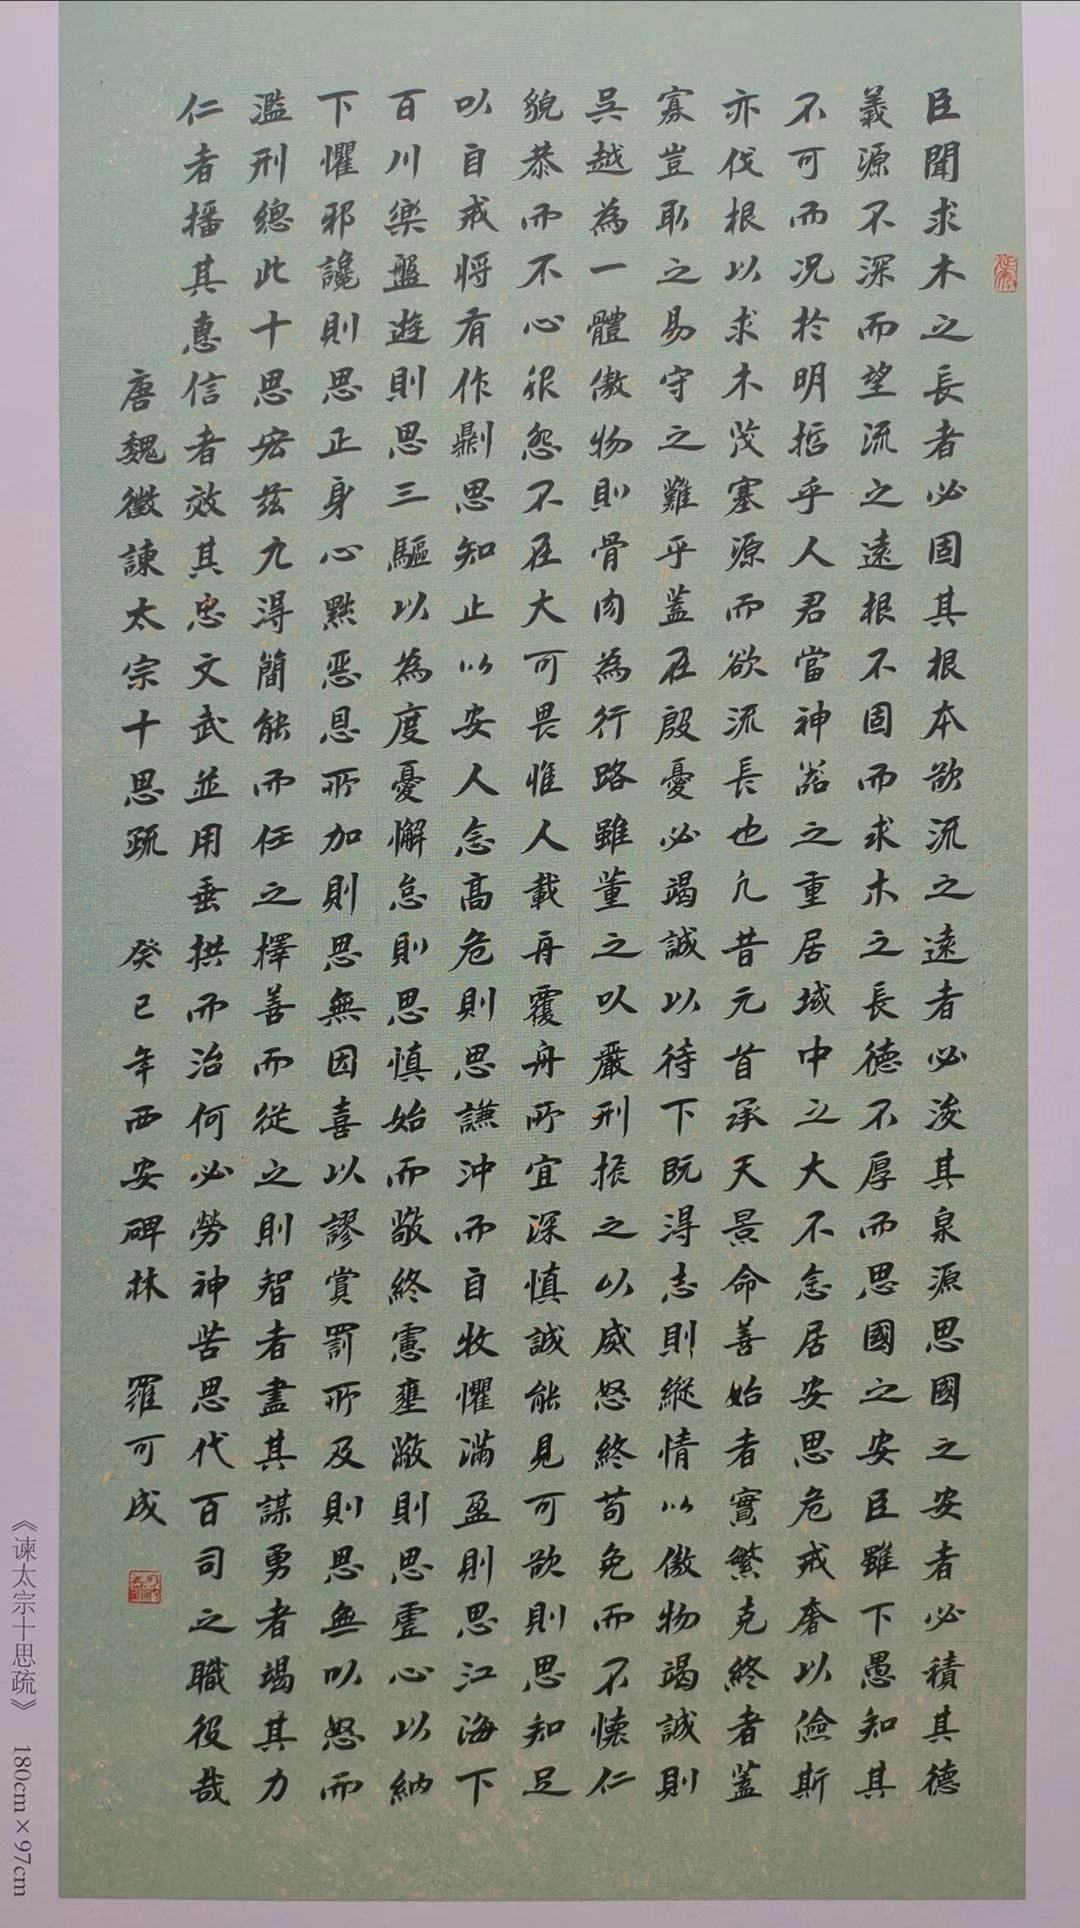 臣聞求木之長者必固其根本欲流之遠者必浚其泉源思國之安者必積其德
義源不深而望流之遠根不固而求木之長德不厚而思國之安臣雖下愚知其
不可而况於明哲乎人君當神器之重居域中之大不念居安思危戒奢以儉斯
亦伐根以求木茂塞源而欲流長也凡昔元首承天景命善始者實繁克終者蓋
寡豈取之易守之難乎蓋在殷憂必竭誠以待下既得志則縱情以傲物竭誠則
吳越為一體傲物則骨肉為行路雖董之以嚴刑振之以威怒終苟免而不懷仁
貌恭而不心服怨不在大可畏惟人載舟覆舟所宜深慎誠能見可欲則思知足
以自戒將有作則思知止以安人念高危則思謙沖而自牧懼滿盈則思江海下
百川樂盤遊則思三驅以為度憂懈怠則思慎始而敬終慮壅蔽則思虛心以納
下懼邪讒則思正身心黜惡恩所加則思無因喜以謬賞罰所及則思無以怒而
濫刑總此十思宏茲九得簡能而任之擇善而從之則智者盡其謀勇者竭其力
仁者播其惠信者效其忠文武並用垂拱而治何必勞神苦思代百司之職役哉
唐魏徵諫太宗十思疏 癸巳年西安碑林 羅可成
《谏太宗十思疏》 180cm×97cm